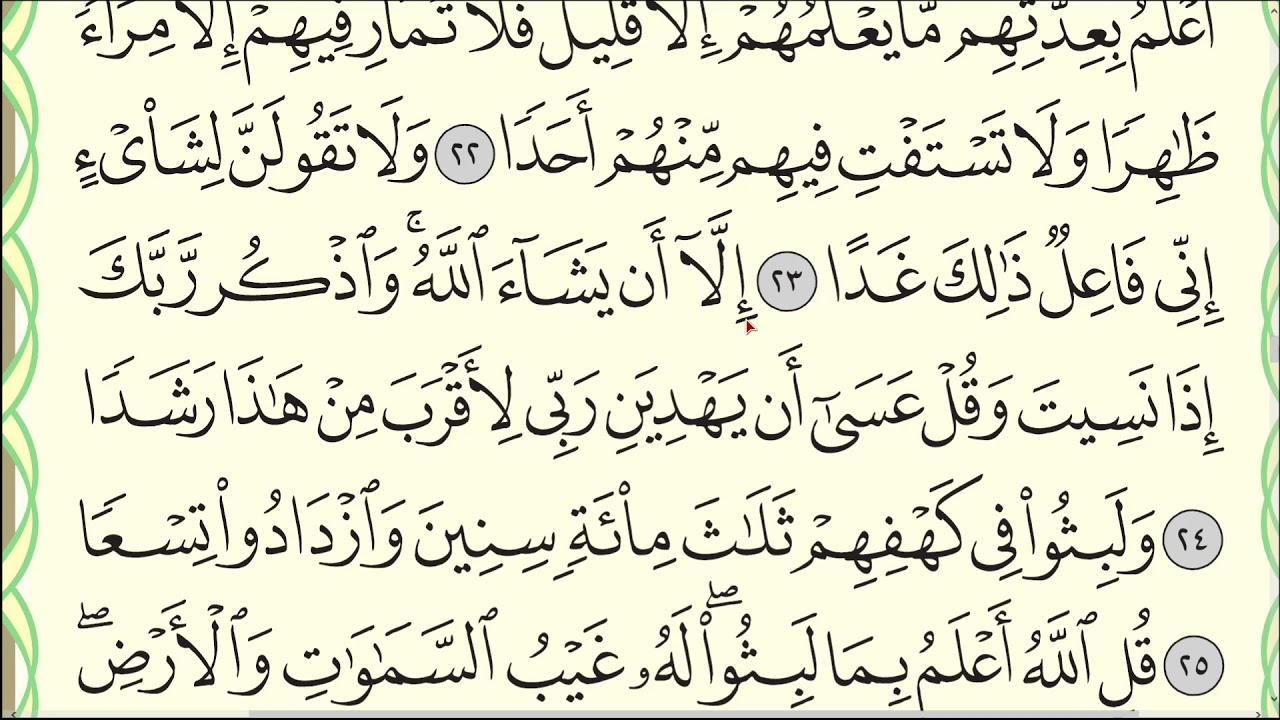 أَعْلَمُ بِعِدَّتِهِم مَّا يَعْلَمُهُمْ إِلَّا قَلِيلٌ فَلَا تُمَارِ فِيهِمْ إِلَّا مِرَآءً
ظَٰهِرًا وَلَا تَسْتَفْتِ فِيهِم مِّنْهُمْ أَحَدًا ٢٢ وَلَا تَقُولَنَّ لِشَاْىْءٍ
إِنِّى فَاعِلٌ ذَٰلِكَ غَدًا ٢٣ إِلَّآ أَن يَشَآءَ ٱللَّهُ ۚ وَٱذْكُر رَّبَّكَ
إِذَا نَسِيتَ وَقُلْ عَسَىٰٓ أَن يَهْدِيَنِ رَبِّى لِأَقْرَبَ مِنْ هَٰذَا رَشَدًا
٢٤ وَلَبِثُوا۟ فِى كَهْفِهِمْ ثَلَٰثَ مِا۟ئَةٍ سِنِينَ وَٱزْدَادُوا۟ تِسْعًا
٢٥ قُلِ ٱللَّهُ أَعْلَمُ بِمَا لَبِثُوا۟ ۖ لَهُۥ غَيْبُ ٱلسَّمَٰوَٰتِ وَٱلْأَرْضِ ۖ